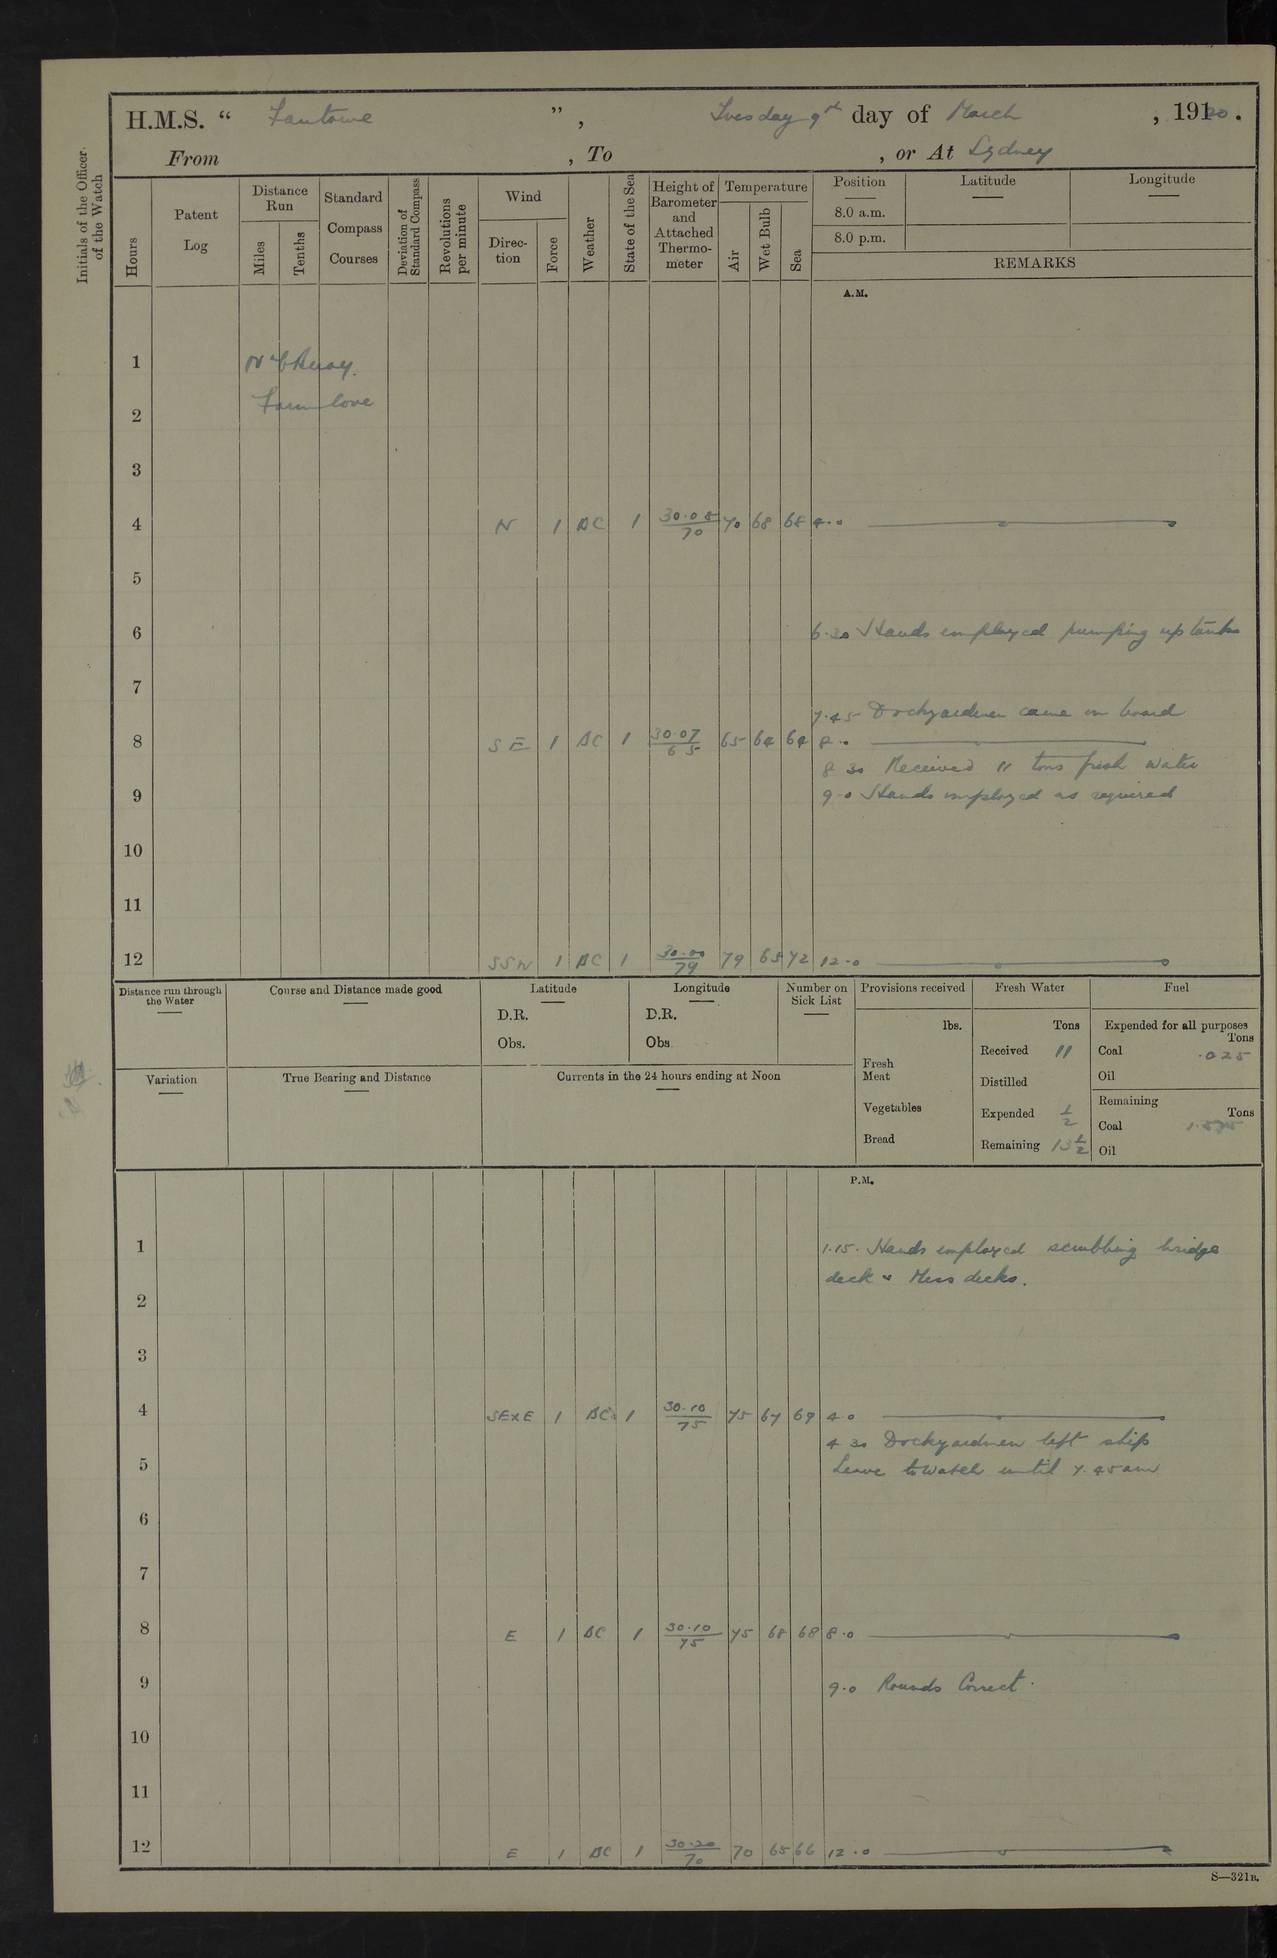 H.M.S. “ Fantome ”, Tuesday 9th day of March, 1920.
From , To , or At Sydney
Initials of the Officer of the Watch
Hours
Patent Log
Distance Run
Miles
Tenths
Standard Compass Courses
Deviation of Standard Compass
Revolutions per minute
Wind
Direction
Force
Weather
State of the Sea
Height of Barometer and Attached Thermometer
Temperature
Air
Wet Bulb
Sea
Position
8.0 a.m.
8.0 p.m.
Latitude
Longitude
REMARKS
A.M.
1
2
Farm Cove
3
4 N 1 BC 1 30.08/70 70 68 68 4.0
5
6 6.30 Hands employed pumping up tanks
7
7.45 Dockyardmen came on board
8 SE 1 BC 1 30.07/65 65 64 64 8.0
8 30 Received 11 tons fresh water
9 9.0 Hands employed as required
10
11
12 SSW 1 BC 1 30.00/79 79 65 72 12.0
Distance run through the Water
Course and Distance made good
Latitude
D.R.
Obs.
Longitude
D.R.
Obs.
Number on Sick List
Provisions received
lbs.
Fresh Meat
Vegetables
Bread
Fresh Water
Tons
Received 11
Distilled
Expended 1/2
Remaining 13 1/2
Fuel
Expended for all purposes
Tons
Coal .025
Oil
Remaining
Tons
Coal
Oil
Variation
True Bearing and Distance
Currents in the 24 hours ending at Noon
P.M.
1 1.15. Hands employed scrubbing bridge
deck & Mess decks.
2
3
4 SExE 1 BC 1 30.10/75 75 67 69 4.0
4 30 Dockyardmen left ship
5 Leave to Watch until 7.45 am
6
7
8 E 1 BC 1 30.10/75 75 68 68 8.0
9 9.0 Rounds Correct.
10
11
12 E 1 BC 1 30.20/70 70 65 66 12.0
S—321B.